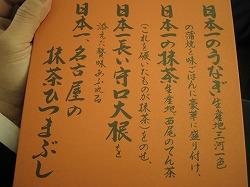 日本一のうなぎ生産地三河一色
の蒲焼を味ごはんに豪華に盛り付け、
日本一の抹茶生産地西尾のてん茶
(これを碾いたものが抹茶)をのせ、
日本一長い守口大根を
添えた味あふれる
日本一、名古屋の
抹茶ひつまぶし